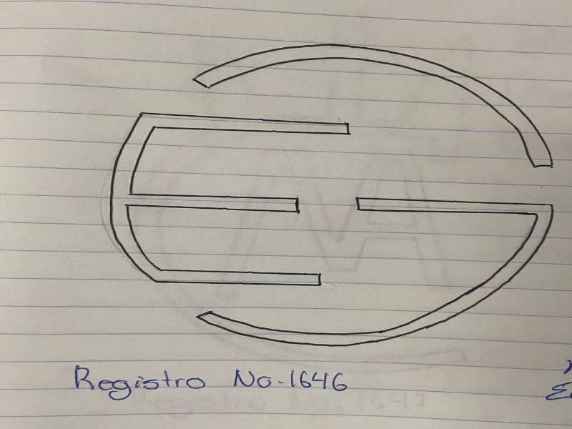 Registro No. 1646